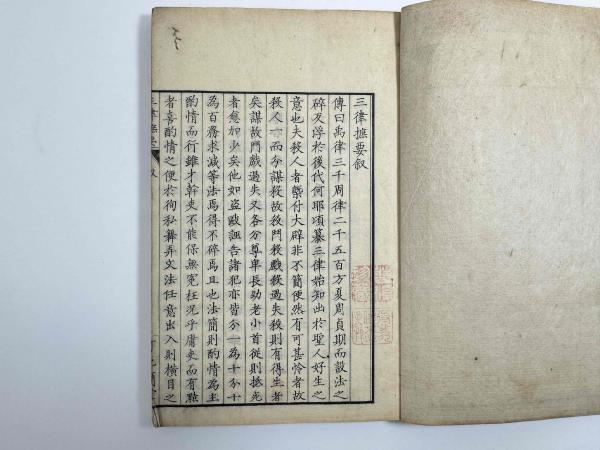 三律摭要叙
傳曰禹律三千周律二千五百方夏周貞期而設法之
碎反浮於後代何耶頃纂三律始知出於聖人好生之
意也夫殺人者槩付大辟非不簡便然有可甚怜者故
殺人一而分謀殺故殺鬥殺戲殺過失殺則有得生者
矣謀故鬥戲過失又各分尊卑長幼老小首從則抵死
者愈加少矣他如盗毆誣告諸犯亦皆分一為十分十
為百務求減等法焉得不碎焉且也法簡則酌情為主
酌情而行雖才幹吏不能保無冤枉况乎庸吏而有黠
者喜酌情之便於徇私舞弄文法任意出入則横目之
三律摭要 叙